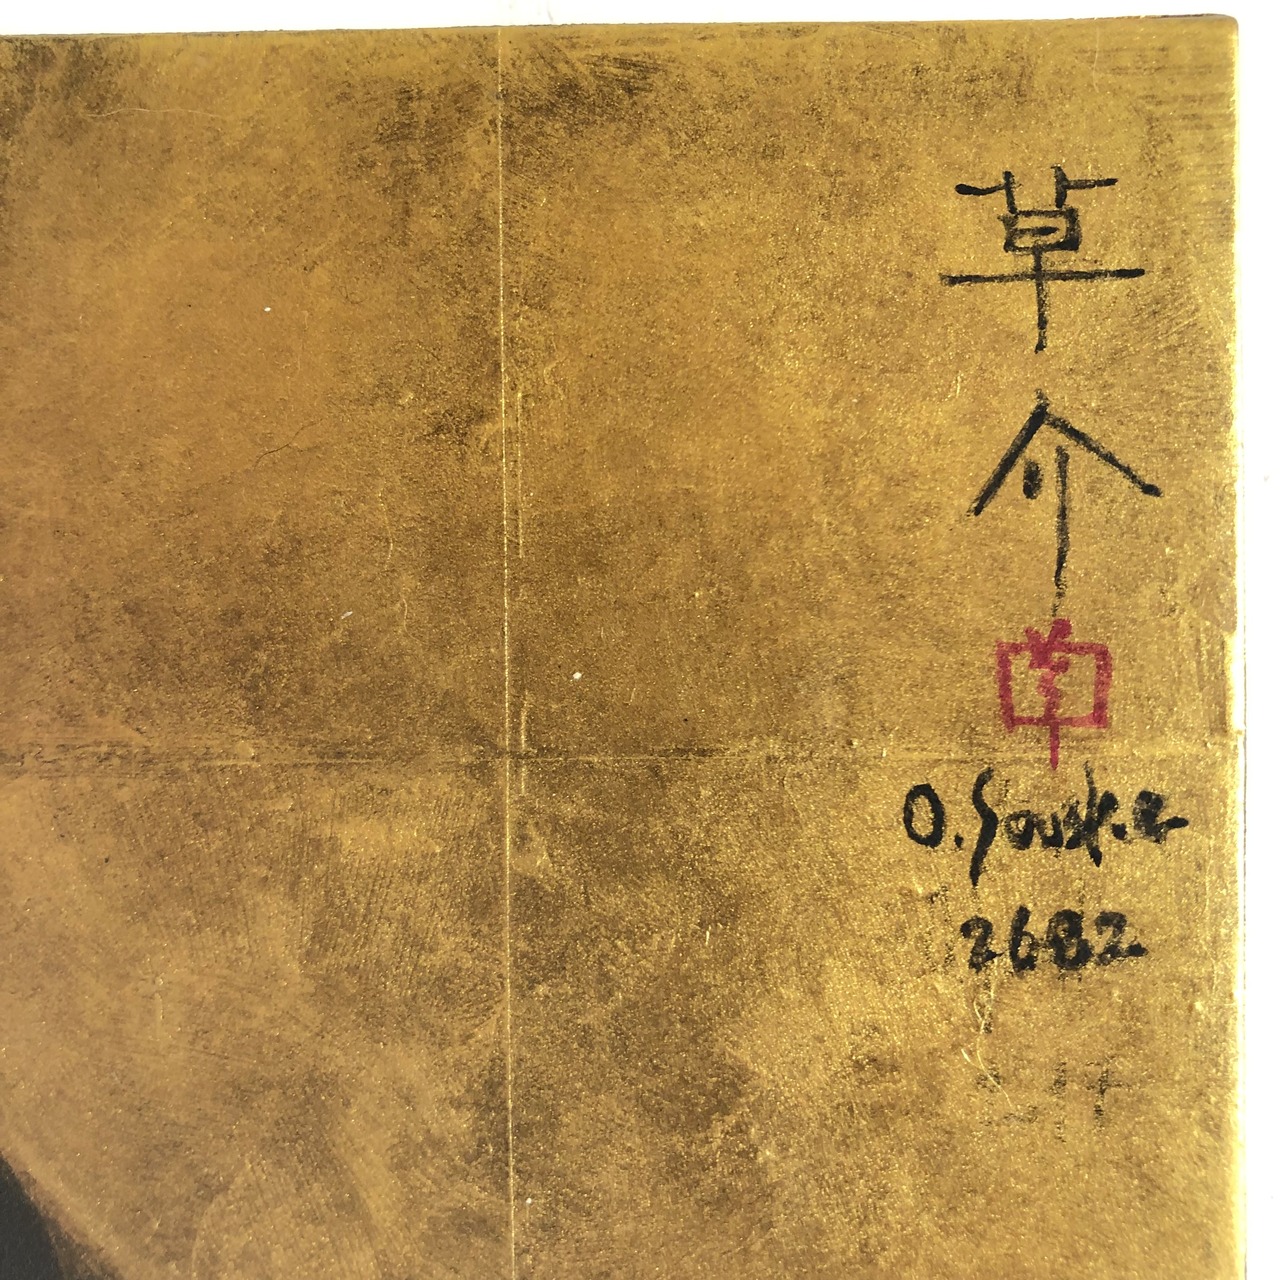 草介
O.Souske
2682